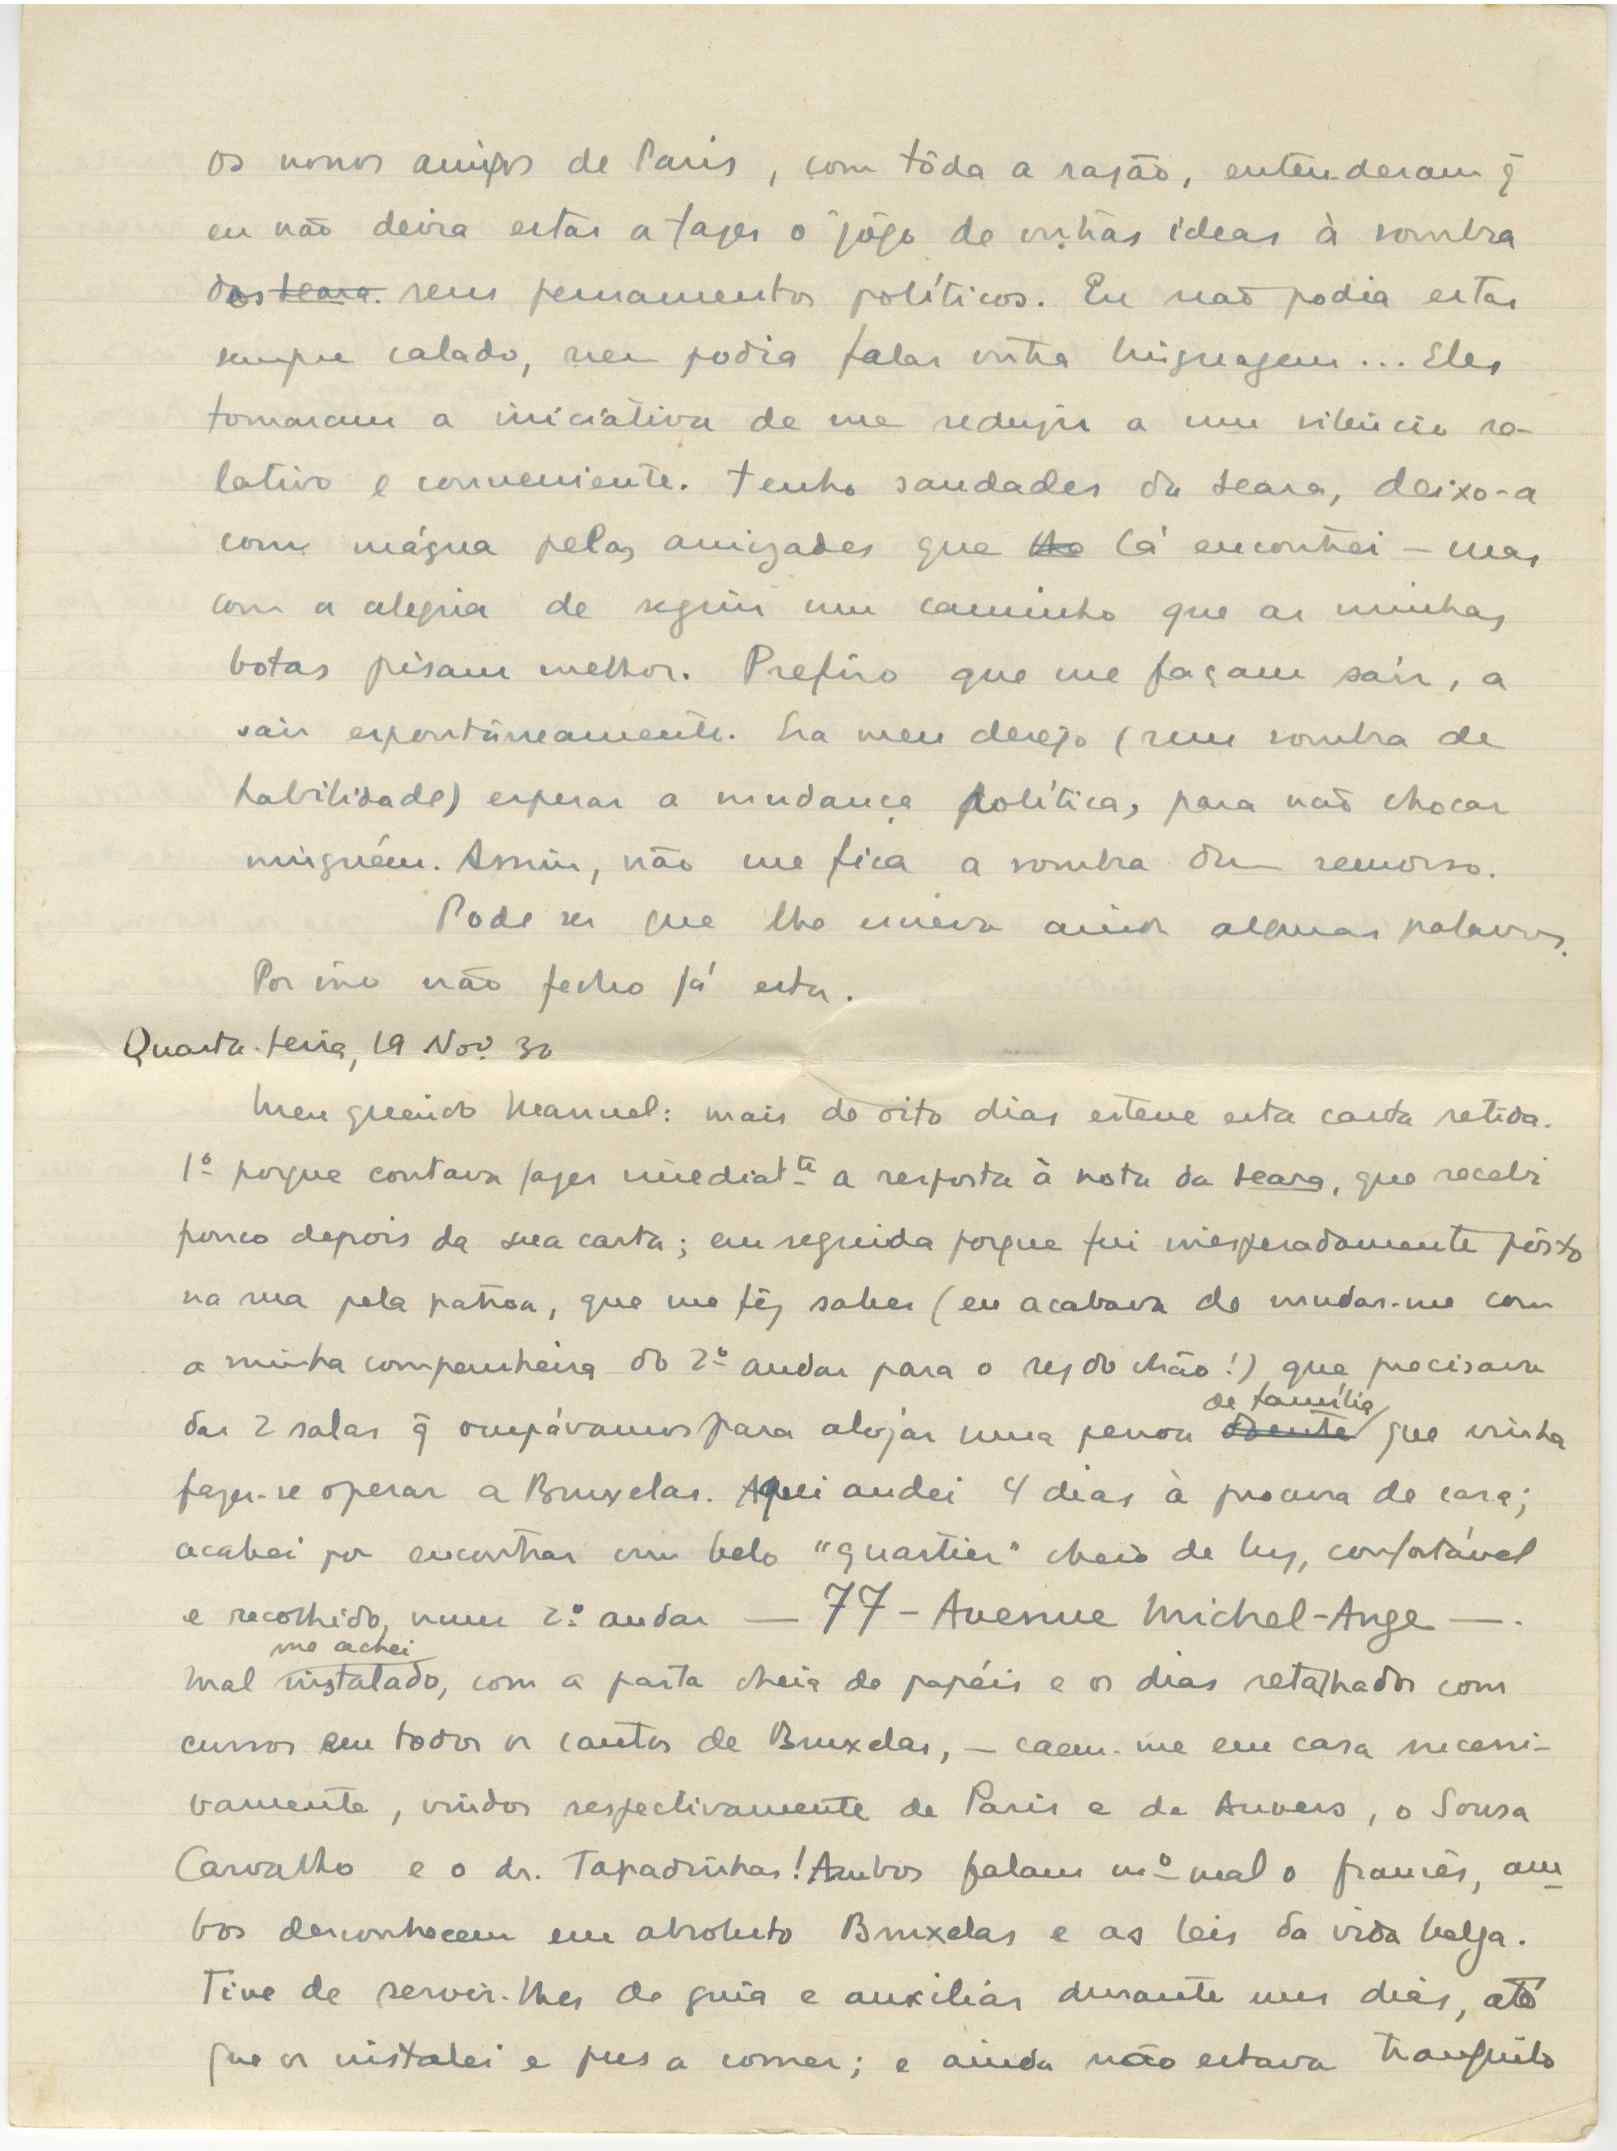 os nossos amigos de Paris, com tôda a razão, entenderam q̃
eu não devia estar a fazer o jôgo de outras ideas à sombra
dos seara. seus pensamentos políticos. Eu não podia estar
sempre calado, nem podia falar outra linguagem... Eles
tomaram a iniciativa de me reduzir a um silêncio re-
lativo e conveniente. Tenho saudades da Seara, deixo-a
com mágua pelas amizades que lá encontrei – mas
com a alegria de seguir um caminho que as minhas
botas pisam melhor. Prefiro que me façam sair, a
sair espontâneamente. Era meu desejo (sem sombra de
habilidade) esperar a mudança política, para não chocar
ninguém. Assim, não me fica a sombra dum remorso.
Pode ser que lhe escreva ainda algumas palavras.
Por isso não fecho já esta.
Quarta-feira, 19 Nov.º 30
Meu querido Manuel: mais de oito dias esteve esta carta retida.
1º porque contava fazer imediatte a resposta à nota da Seara, que recebi
pouco depois da sua carta; em seguida porque fui inesperadamente pôsto
na rua pela patroa, que me fêz saber (eu acabava de mudar-me com
a minha companheira do 2º andar para o rez do chão!) que precisava
de família
das 2 salas q̃ ocupávamos para alojar uma pessoa doente que vinha
fazer-se operar a Bruxelas. Aqui andei 4 dias à procura de casa;
acabei por encontrar um belo "quartier" cheio de luz, confortável
e recolhido, num 2.º andar — 77 – Avenue Michel-Ange —.
me achei
Mal instalado, com a pasta cheia de papéis e os dias retalhados com
cursos em todos os cantos de Bruxelas, – caem-me em casa sucessi-
vamente, vindos respectivamente de Paris e de Anvers, o Sousa
Carvalho e o dr. Tapadinhas! Ambos falam mº mal o francês, am-
bos desconhecem em absoluto Bruxelas e as leis da vida belga.
Tive de servir-lhes de guia e auxiliar durante uns dias, até
que os instalei e pus a comer; e ainda não estava tranquilo